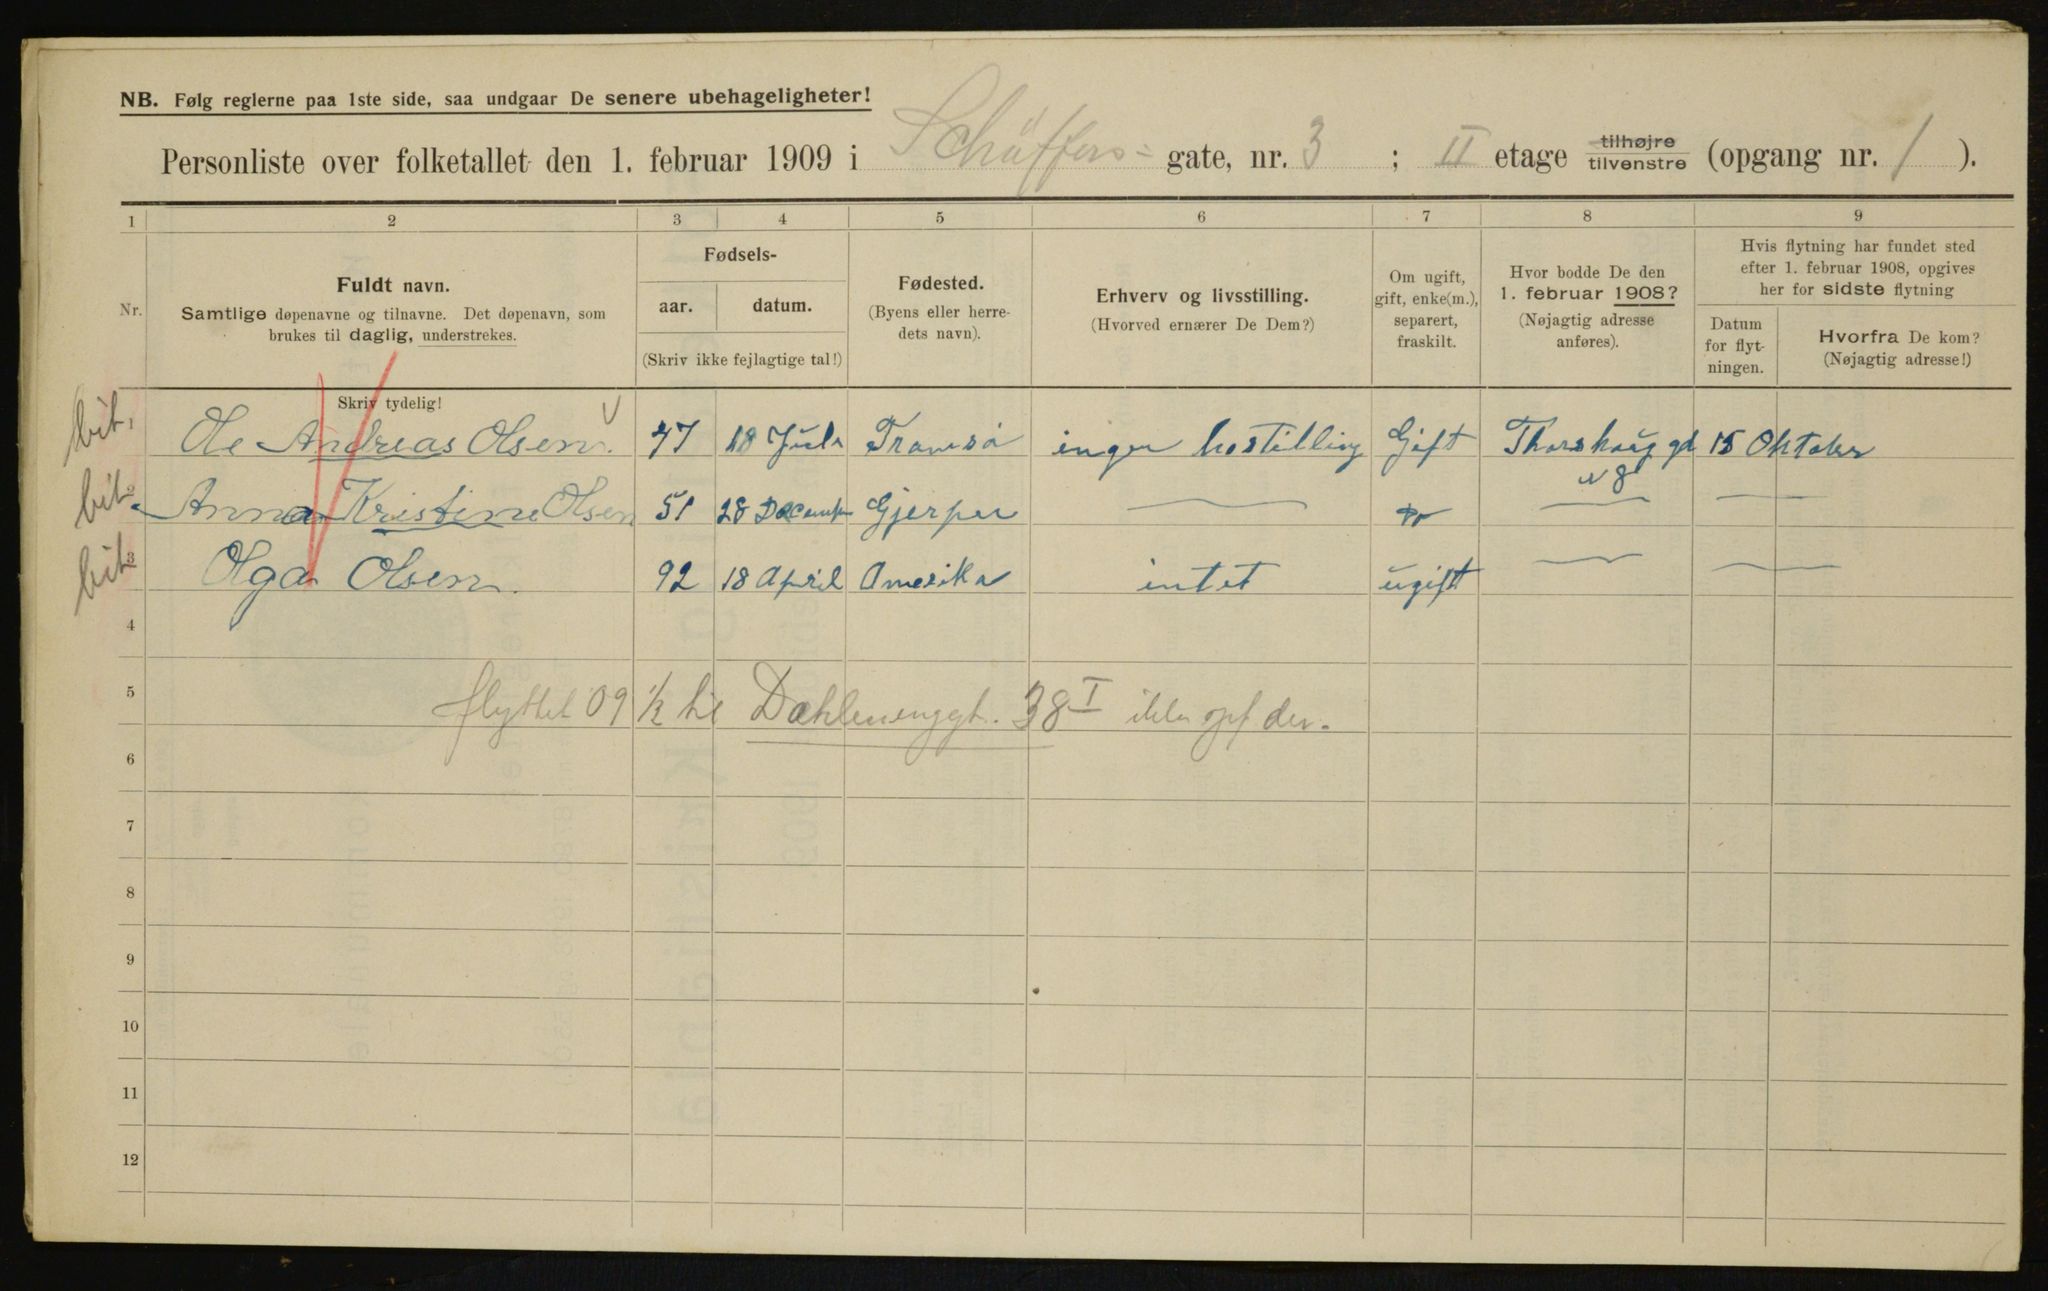 NB. Følg reglerne paa 1ste side, saa undgaar De senere ubehageligheter!
Personliste over folketallet den 1. februar 1909 i Schäffers- gate, nr. 3 ; II etage tilhøjre tilvenstre (opgang nr. 1 ).
1 2 3 4 5 6 7 8 9
Nr.
Fuldt navn.
Samtlige døpenavne og tilnavne. Det døpenavn, som
brukes til daglig, understrekes.
Skriv tydelig!
Fødsels-
aar. datum.
(Skriv ikke fejlagtige tal!)
Fødested.
(Byens eller herre-
dets navn).
Erhverv og livsstilling.
(Hvorved ernærer De Dem?)
Om ugift,
gift, enke(m.),
separert,
fraskilt.
Hvor bodde De den
1. februar 1908?
(Nøjagtig adresse
anføres).
Hvis flytning har fundet sted
efter 1. februar 1908, opgives
her for sidste flytning
Datum
for flyt-
ningen.
Hvorfra De kom?
(Nøjagtig adresse!)
bit. Ole Andreas Olsen. 47 18 Juli Tromsö ingen bestilling Gift Thorshaug gd 15 Oktober
N 8
bit. 2 Anna Kristine Olsen 51 28 Decemper Gjerpen — — —
bit. 3 Olga Olsen. 92 18 April Amerika intet ugift — —
4
5 flyttet 09 1/2 til Dahlenenggt. 38 I ikke opf der.
6
7
8
9
10
11
12